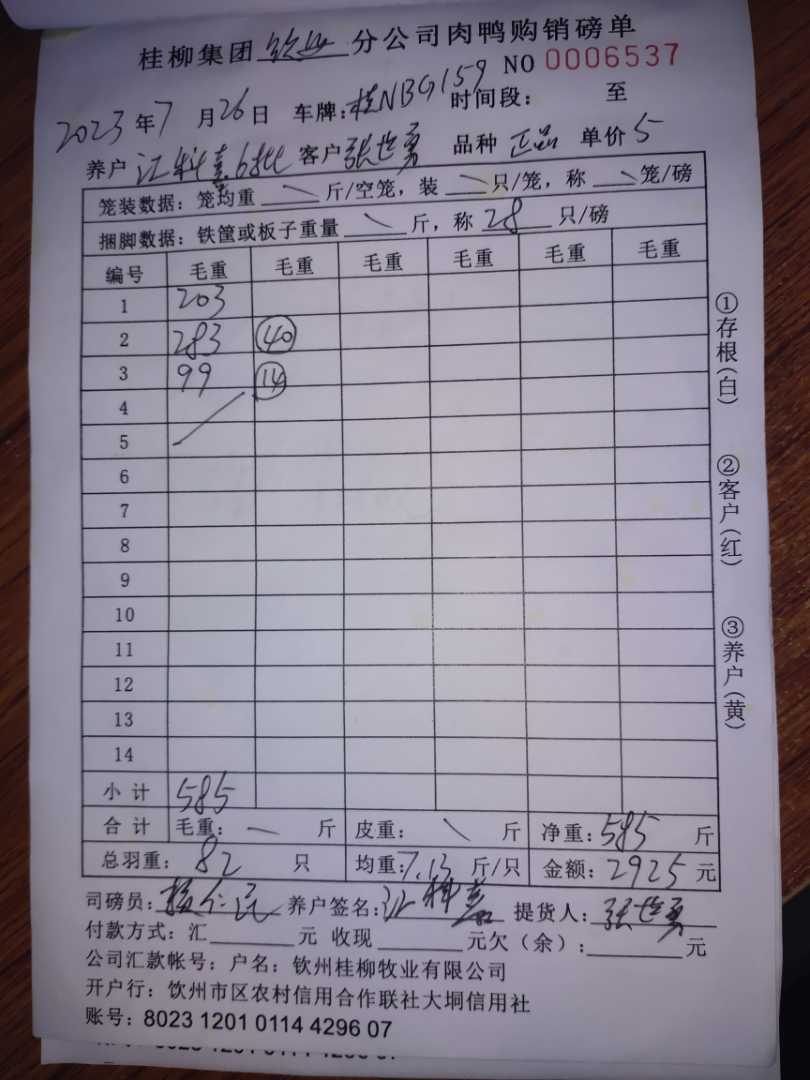 桂柳集团钦州分公司肉鸭购销磅单
NO 0006537
2023年7月26日 车牌:桂NBG159 时间段: 至
养户 江科嘉6批 客户 张世勇 品种 正品 单价 5
笼装数据:笼均重 \ 斤/空笼,装 \ 只/笼,称 \ 笼/磅
捆脚数据:铁筐或板子重量 \ 斤,称 28 只/磅
编号 毛重 毛重 毛重 毛重 毛重 毛重
1 203
2 283 40
3 99 14
4
5
6
7
8
9
10
11
12
13
14
小计 585
合计 毛重: — 斤 皮重: \ 斤 净重:585 斤
总羽重: 82 只 均重:7.13 斤/只 金额:2925元
司磅员: 养户签名:江科嘉 提货人:张世勇
付款方式:汇 元 收现 元欠(余): 元
公司汇款帐号:户名:钦州桂柳牧业有限公司
开户行:饮州市区农村信用合作联社大垌信用社
账号:8023 1201 0114 4296 07
①存根(白)
②客户(红)
③养户(黄)